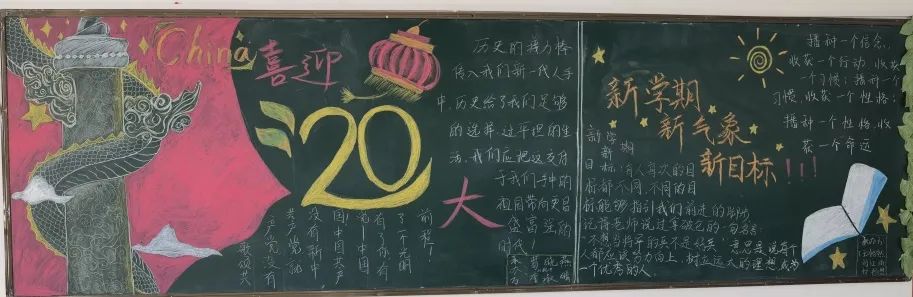 China
喜迎
20
大
历史的接力棒
传入我们新一代人手
中,历史给了我们足够
的选择,过平坦的生
活,我们应把这支付
于我们手中的
祖国带向更昌
盛富强的
时代!
歌颂共
产党没有
共产党就
没有新中
国!中国共产
党—中国
有了你有
了一个光明
前程!
新学期
新气象
新目标!!!
新学期
新
目标:有人每次的目
标都不同,不同的目
标能够指引我们前走的脚步
记得老师说过拿破仑的一句名言:
不想当将军的兵不是好兵
意思是说每个
人都应该努力向上,树立远大的理想,成为
一个优秀的人.
播种一个信念,
收获一个行动,收获
一个习惯;播种一个
习惯,收获一个性格;
播种一个性格,收
获一个命运